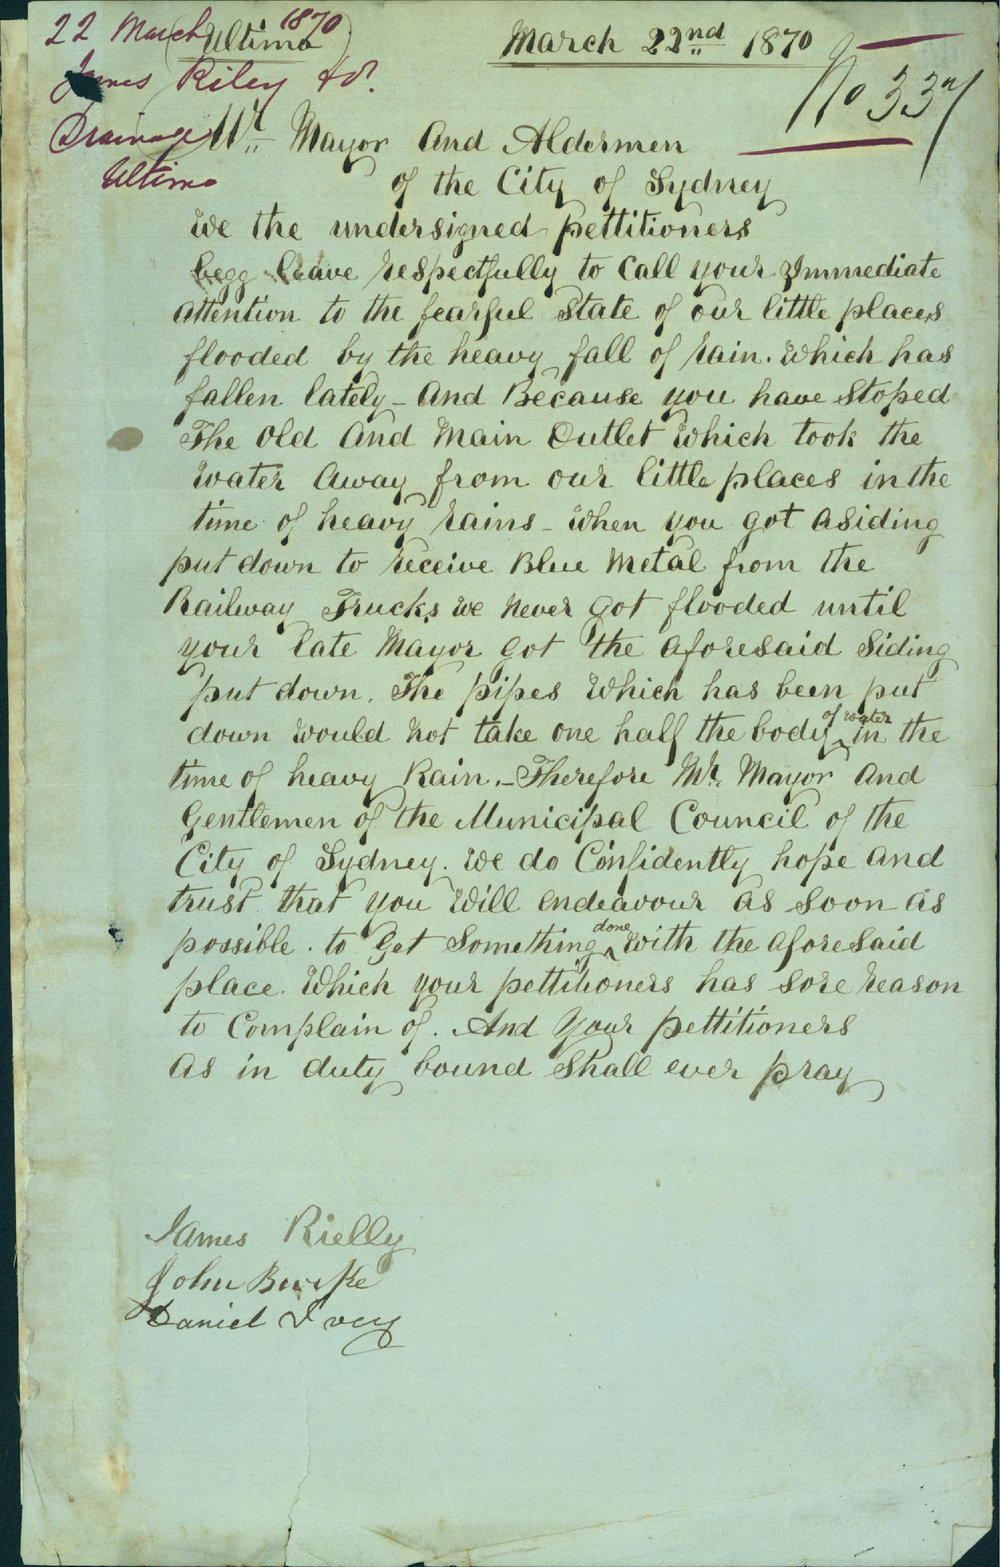 22 March 1870
James Riley & ors.
Drainage
Ultimo
Ultimo
March 22nd 1870
No 337
Mr. Mayor And Aldermen
of the City of Sydney
We the undersigned pettitioners
begg leave respectfully to Call your Immediate
Attention to the fearful State of our little places
flooded by the heavy fall of rain. Which has
fallen lately - And Because you have Stoped
The Old And Main Outlet Which took the
Water Away from our little places in the
time of heavy rains - When you got a Siding
put down to receive Blue Metal from the
Railway Trucks, we never got flooded until
your late Mayor got the aforesaid Siding
put down. The pipes Which has been put
down Would not take one half the body of water in the
time of heavy Rain. - Therefore Mr. Mayor And
Gentlemen of the Municipal Council of the
City of Sydney. We do Confidently hope And
trust that you Will endeavour As Soon As
possible. to Get Something done With the aforesaid
place. Which your pettitioners has Sore reason
to Complain of. And Your pettitioners
As in duty bound Shall ever pray
James Rielly
John Burke
Daniel Ivey